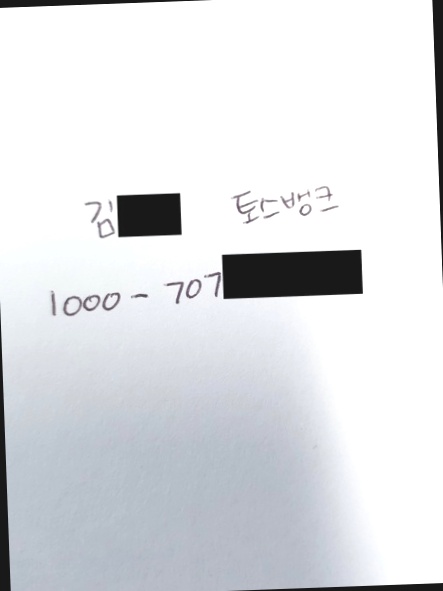 김 토스뱅크
1000 - 707